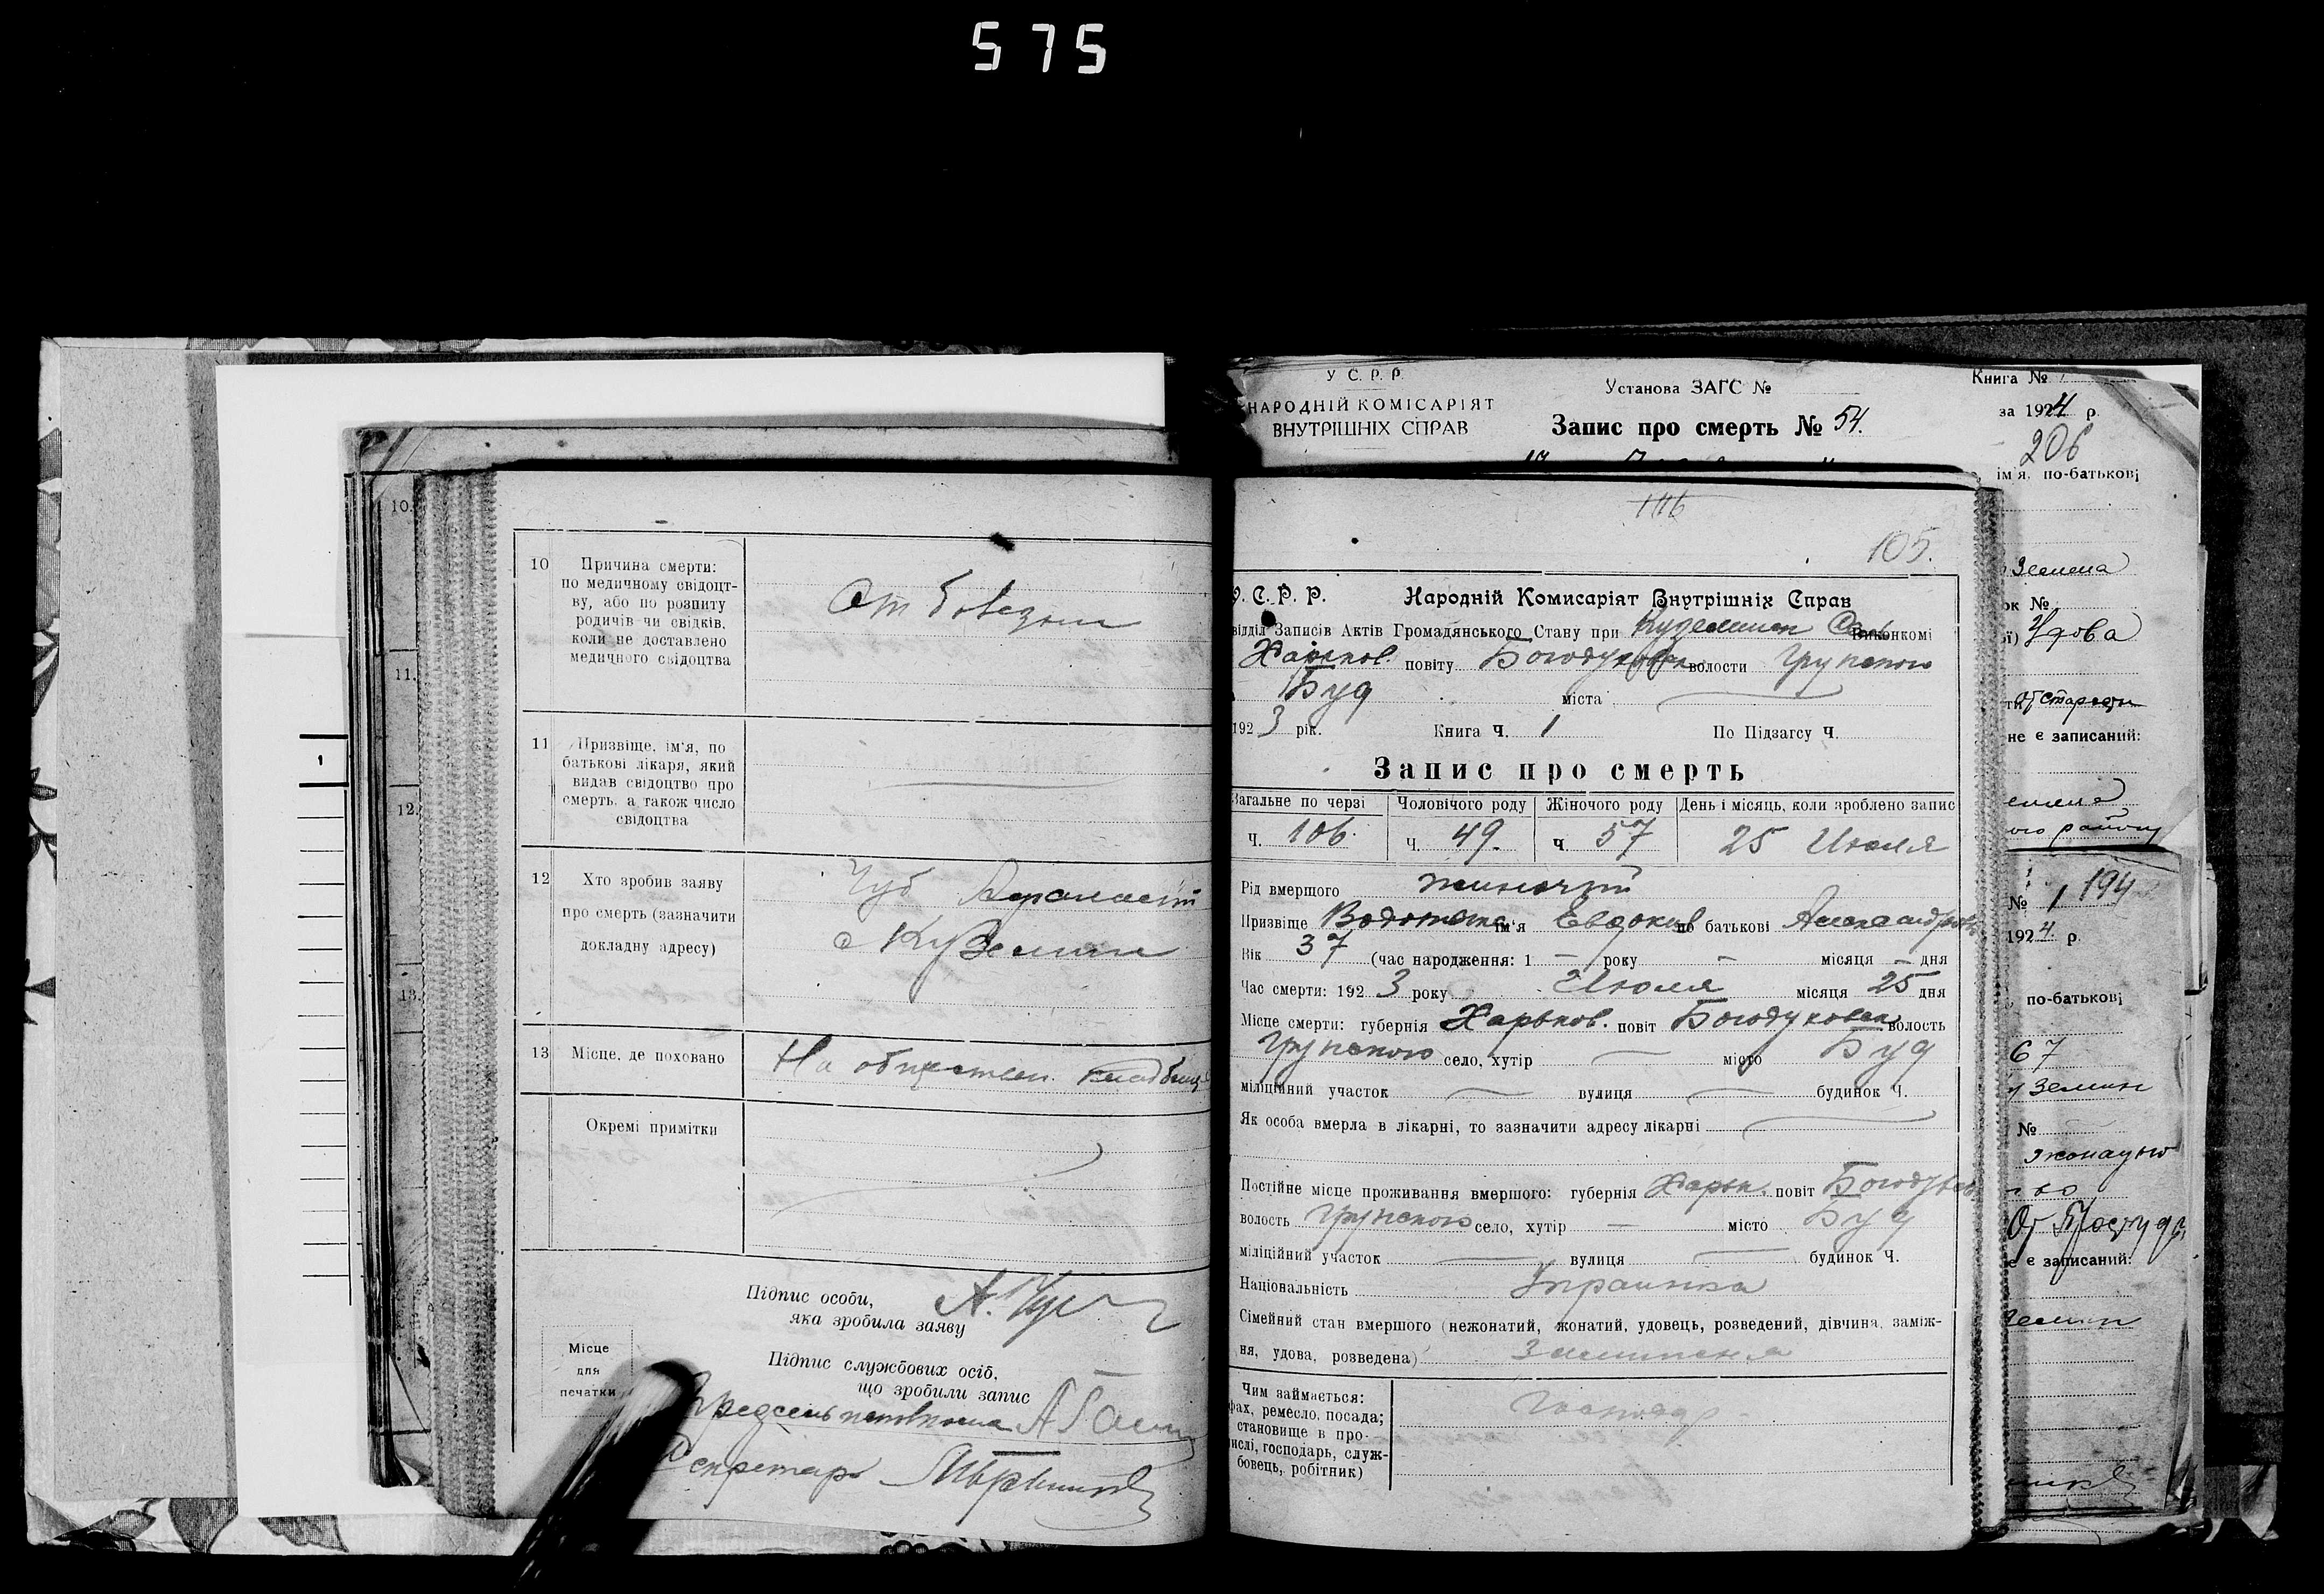 575
10.
11.
12.
13.
1
10 Причина смерти:
по медичному свідоцт-
ву, або по розпиту
родичів чи свідків,
коли не доставлено
медичного свідоцтва
От
11 Призвіще, ім'я, по
батькові лікаря, який
видав свідоцтво про
смерть, а також число
свідоцтва
12 Хто зробив заяву
про смерть (зазначити
докладну адресу)
Чуб
с Куземин
13 Місце, де поховано
На обществен. кладбищ
Окремі примітки
Підпис особи,
яка зробила заяву
А. Чуб
Місце
для
печатки
Підпис службових осіб,
що зробили запис
Секретарь
У С. Р. Р.
НАРОДНІЙ КОМІСАРІЯТ
ВНУТРІШНІХ СПРАВ
Установа ЗАГС №
Запис про смерть № 54.
Книга №
за 1924 р.
206
ім'я, по-батькові
116
105.
У. С. Р. Р. Народній Комисаріят Внутрішніх Справ
відділ Записів Актів Громадянського Стану при Куземин Сель Виконкомі
Харьков. повіту Богодуховск волости Грунского
Буд міста
1923 рік. Книга Ч. 1 По Підзагсу Ч.
Запис про смерть
Загальне по черзі Чоловічого роду Жіночого роду День і місяць, коли зроблено запис
Ч. 106. Ч. 49. Ч 57 25 Июля
Рід вмершого жиночий
Призвіще ім'я Евдокия по батькові Александров
Вік 37 (час народження: 1 – року – місяця – дня
Час смерти: 1923 року Июля місяця 25 дня
Місце смерти: губернія Харьков. повіт Богодуховск волость
Грунского село, хутір місто Буд
міліційний участок вулиця будинок Ч.
Як особа вмерла в лікарні, то зазначити адресу лікарні
Постійне місце проживання вмершого: губернія Харьк. повіт Богодухов
волость Грунского село, хутір – місто Буд
міліційний участок вулиця будинок Ч.
Національність Украинка
Сімейний стан вмершого (нежонатий, жонатий, удовець, розведений, дівчина, заміж-
ня, удова, розведена)
Чим займається:
фах, ремесло, посада;
становище в про-
мислі, господарь, служ-
бовець, робітник)
Господар
Земена
ок №
Удова
От старости
не є записаний:
ого району
№ 1 194
1924 р.
по-батькові
67
Земин
№
От Простуди
е є записаний: